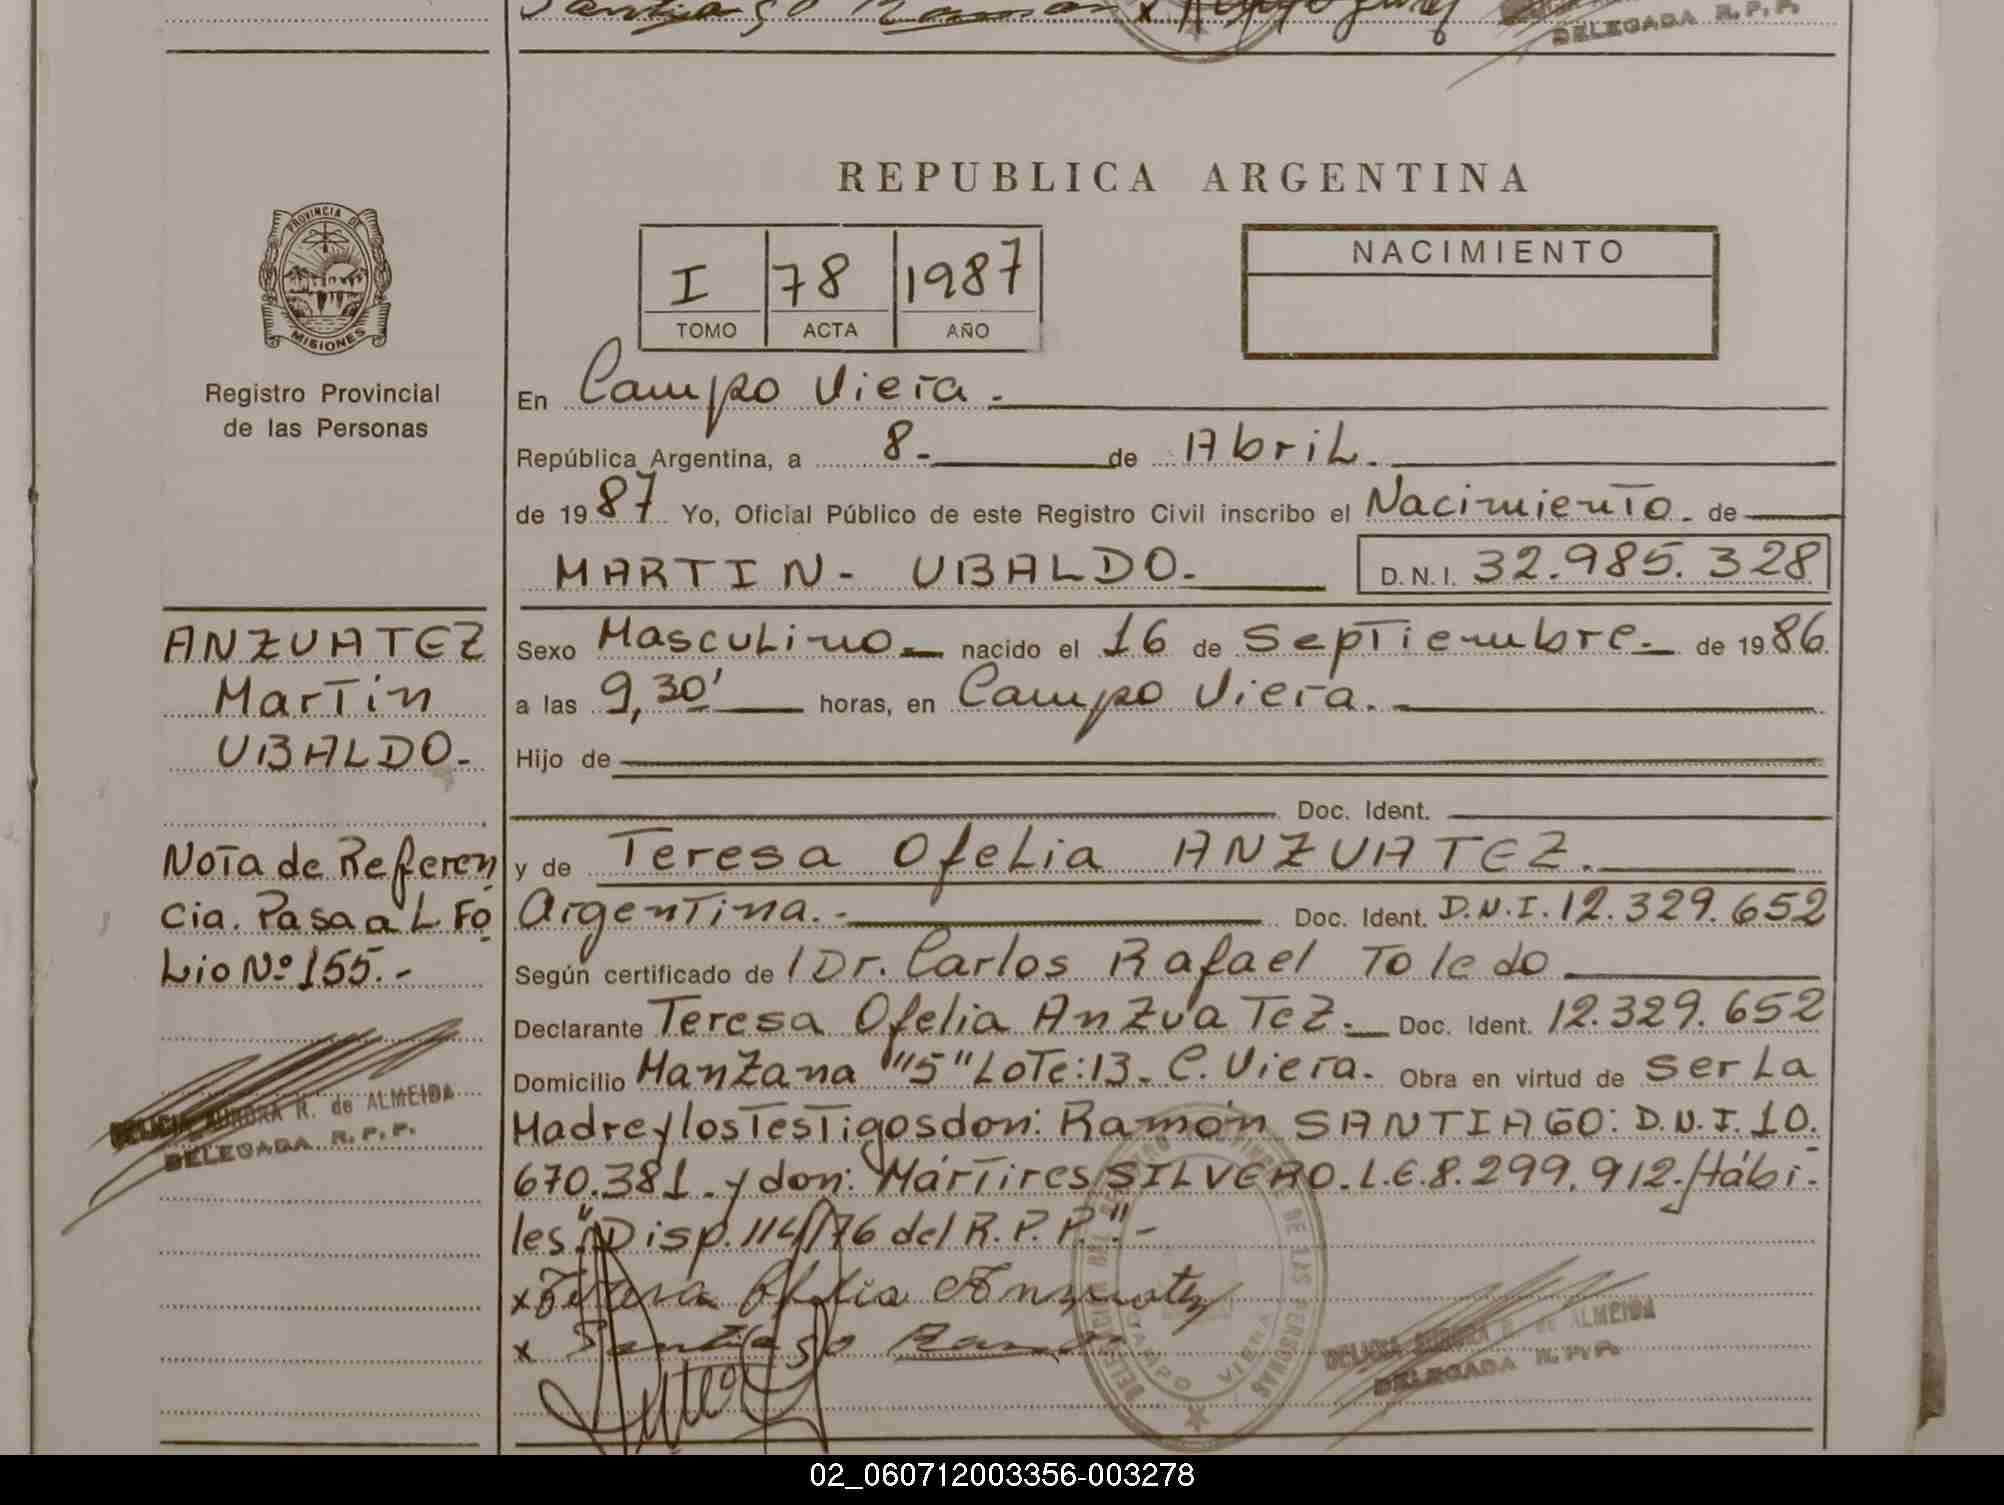 Santiago Ramon x
DELEGADA R.P.P.
REPUBLICA ARGENTINA
PROVINCIA DE
MISIONES
NACIMIENTO
I 78 1987
TOMO ACTA AÑO
Registro Provincial
de las Personas
En Campo Viera.
República Argentina, a 8.- de Abril.
de 1987 Yo, Oficial Público de este Registro Civil inscribo el Nacimiento. de
MARTIN- UBALDO.- D.N.I. 32.985.328
ANZUATEZ
Martin
UBALDO.-
Sexo Masculino.- nacido el 16 de Septiembre.- de 1986.
a las 9,30' horas, en Campo Viera.
Hijo de
Doc. Ident.
y de Teresa Ofelia ANZUATEZ.
Argentina.- Doc. Ident. D.N.I. 12.329.652
Nota de Referen
cia. Pasa a L Fo
Lio Nº 155.-
Según certificado de Dr. Carlos Rafael Toledo
Declarante Teresa Ofelia AnZuaTeZ.- Doc. Ident. 12.329.652
Domicilio Manzana "5" Lote: 13. C. Viera. Obra en virtud de ser La
Madre y los Testigos don: Ramón SANTIAGO: D.N.I. 10.
670.381. y don: Mártires SILVERO. L.E. 8.299.912. Hábi-
les. "Disp. 114/76 del R.P.P.".-
x Teresa Ofelia Anzuatez
x Santiago Ramon
DELICIA AURORA R. de ALMEIDA
DELEGADA R.P.P.
DELEGACION DEL REGISTRO PROVINCIAL DE LAS PERSONAS
CAMPO VIERA
DELICIA AURORA R. de ALMEIDA
DELEGADA R.P.P.
02_060712003356-003278